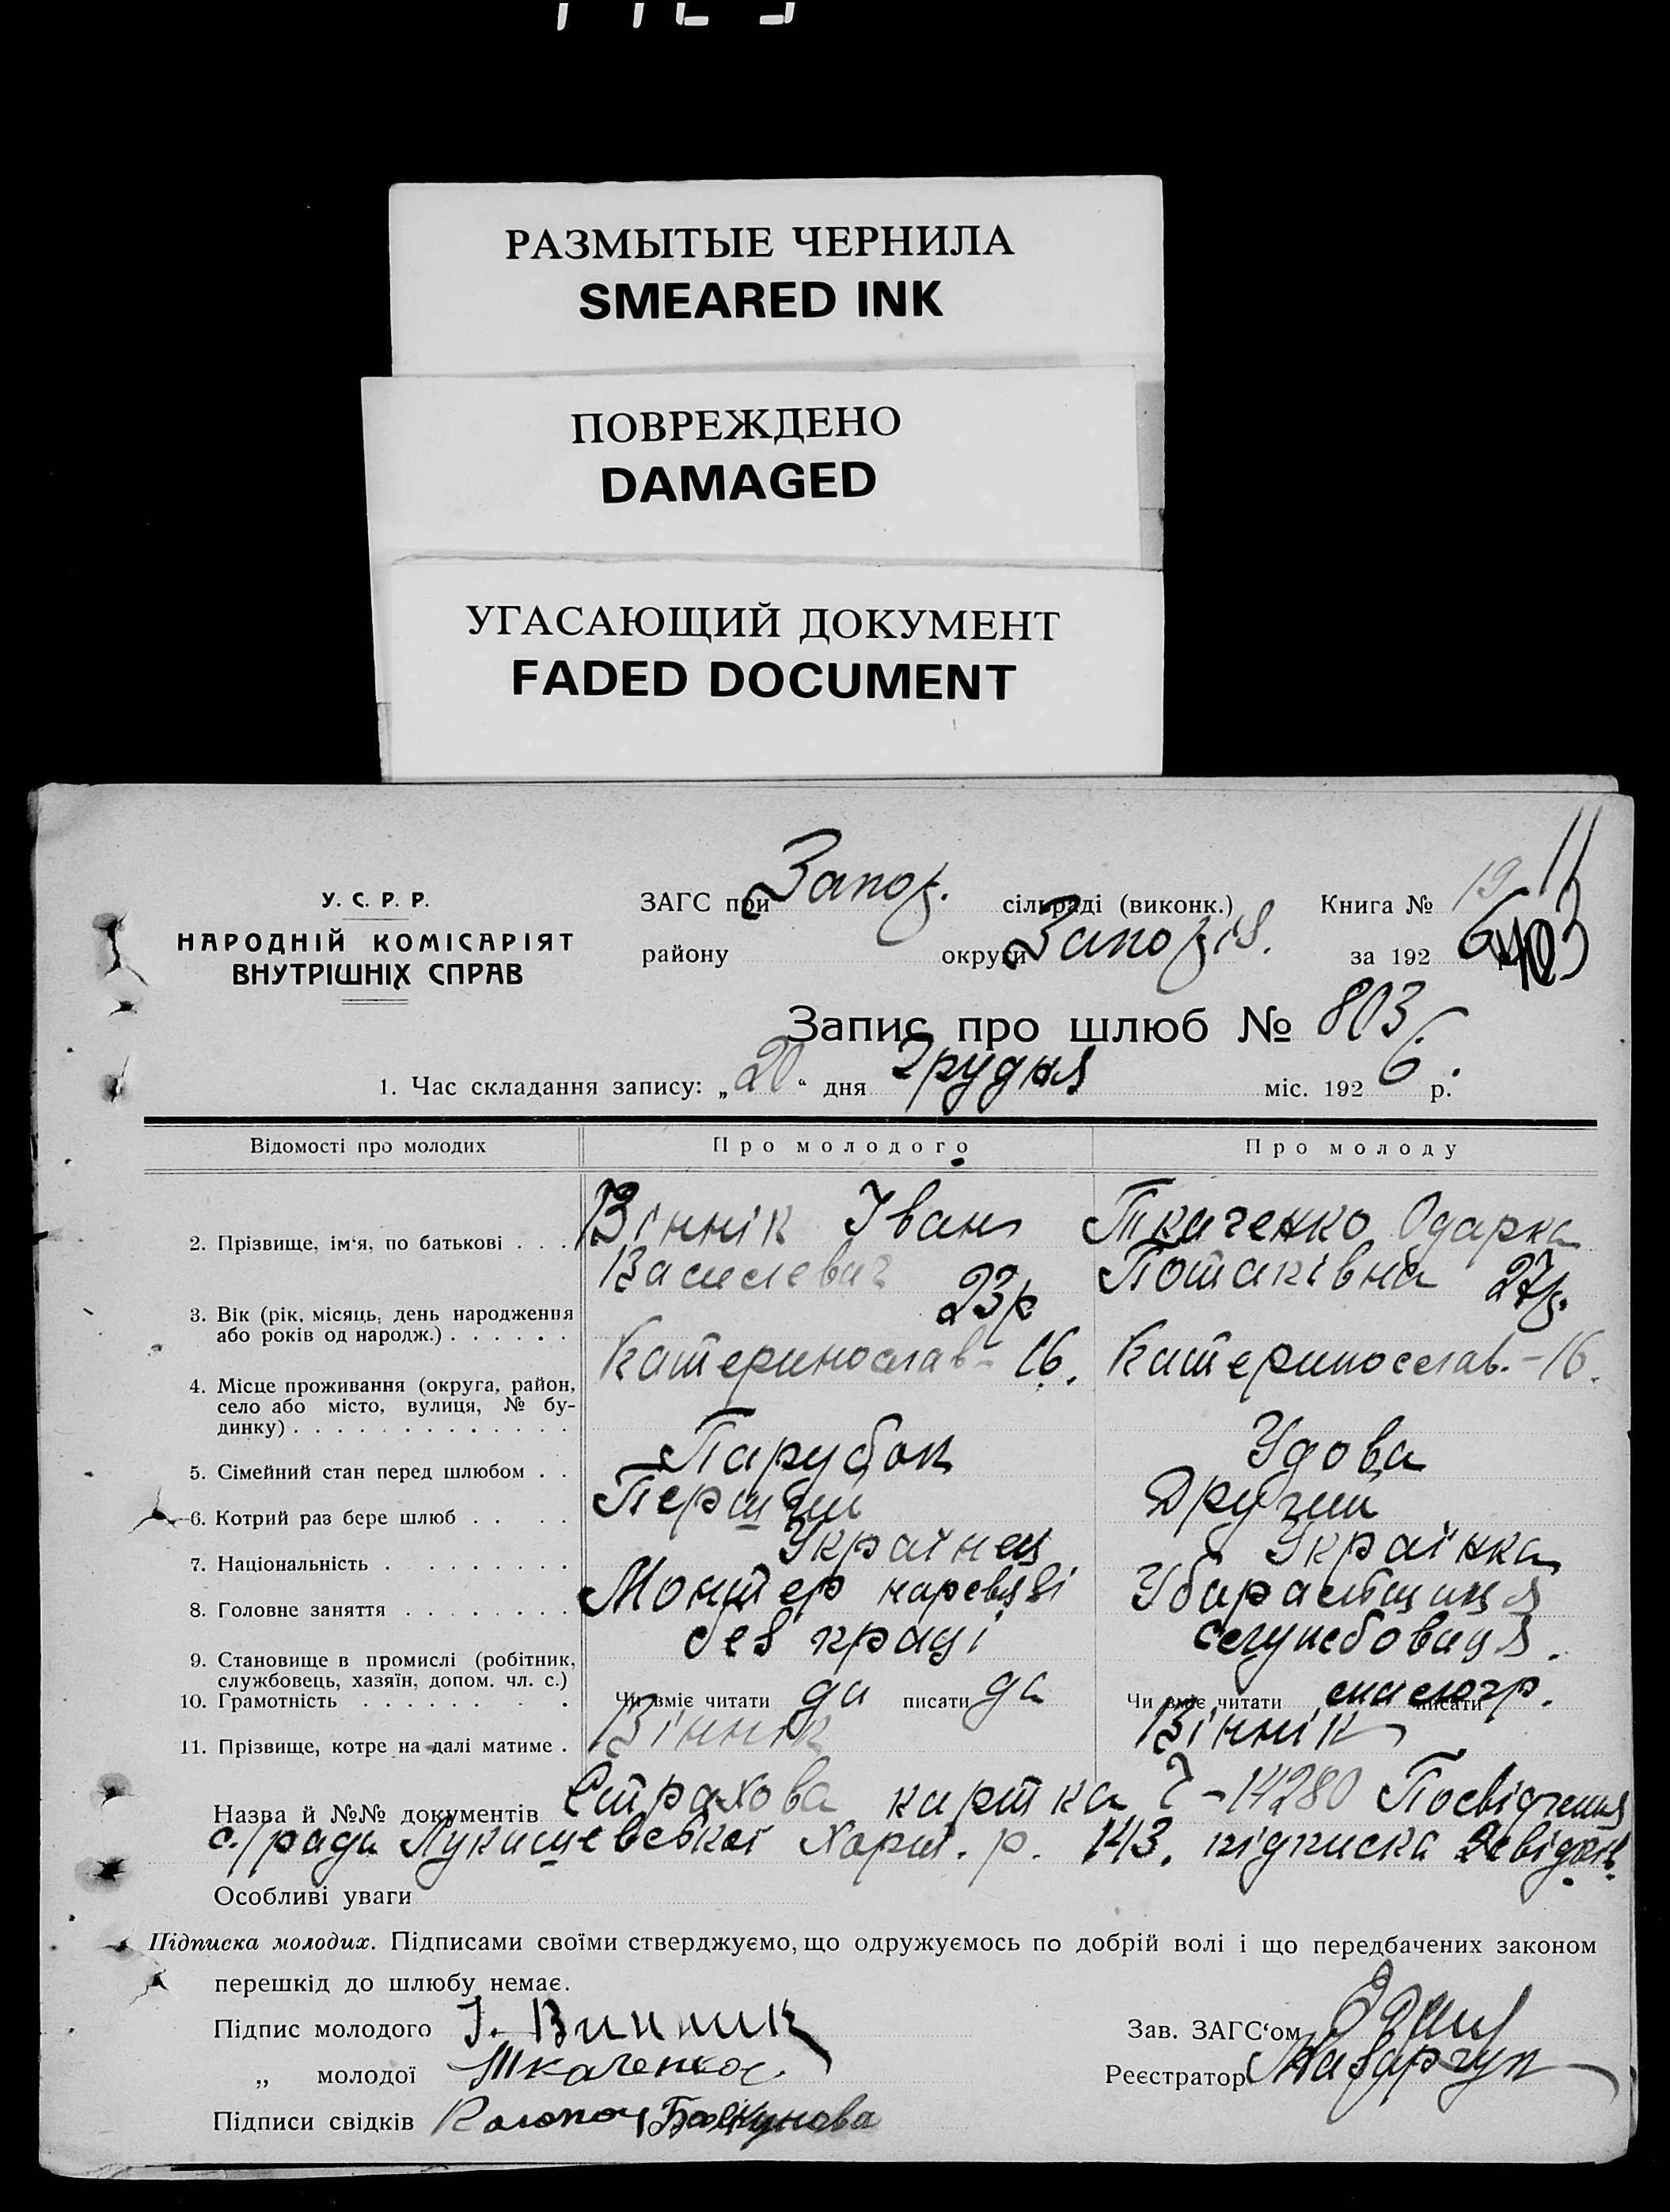 РАЗМЫТЫЕ ЧЕРНИЛА
SMEARED INK
ПОВРЕЖДЕНО
DAMAGED
УГАСАЮЩИЙ ДОКУМЕНТ
FADED DOCUMENT
У. С. Р. Р.
НАРОДНІЙ КОМІСАРІЯТ
ВНУТРІШНІХ СПРАВ
ЗАГС при Запоз. сільраді (виконк.) Книга № 19
району округи Запозіз. за 192 6
Запис про шлюб № 803
1. Час складання запису: „20" дня Грудня міс. 1926 р.
Відомості про молодих Про молодого Про молоду
2. Прізвище, ім'я, по батькові . . . Віннік Іван Ткаченко Одарка
Василевич 23р Потапівна 27р.
3. Вік (рік, місяць, день народження
або років од народж.) . . . . . .
Катеринослав- 16. Катеринослав.-16.
4. Місце проживання (округа, район,
село або місто, вулиця, № бу-
динку) . . . . . . . . . . . . .
5. Сімейний стан перед шлюбом . . Парубок Удова
6. Котрий раз бере шлюб . . . . Перший Другий
7. Національність . . . . . . . . . Українец Українка
8. Головне заняття . . . . . . . . Монтер Убаральщиця
без праці служебовиця.
9. Становище в промислі (робітник,
службовець, хазяїн, допом. чл. с.)
10. Грамотність . . . . . . . . Чи вміє читати да писати да Чи вміє читати писати малогр.
11. Прізвище, котре на далі матиме . Віннік Віннік
Назва й №№ документів Страхова картка Ч-14280 Посвідчення
с/ради Лукашевської Хорт. р. 143. підписка
Особливі уваги
Підписка молодих. Підписами своїми стверджуємо, що одружуємось по добрій волі і що передбачених законом
перешкід до шлюбу немає.
Підпис молодого І. Винник Зав. ЗАГС'ом
„ молодої Ткаченко Реєстратор
Підписи свідків